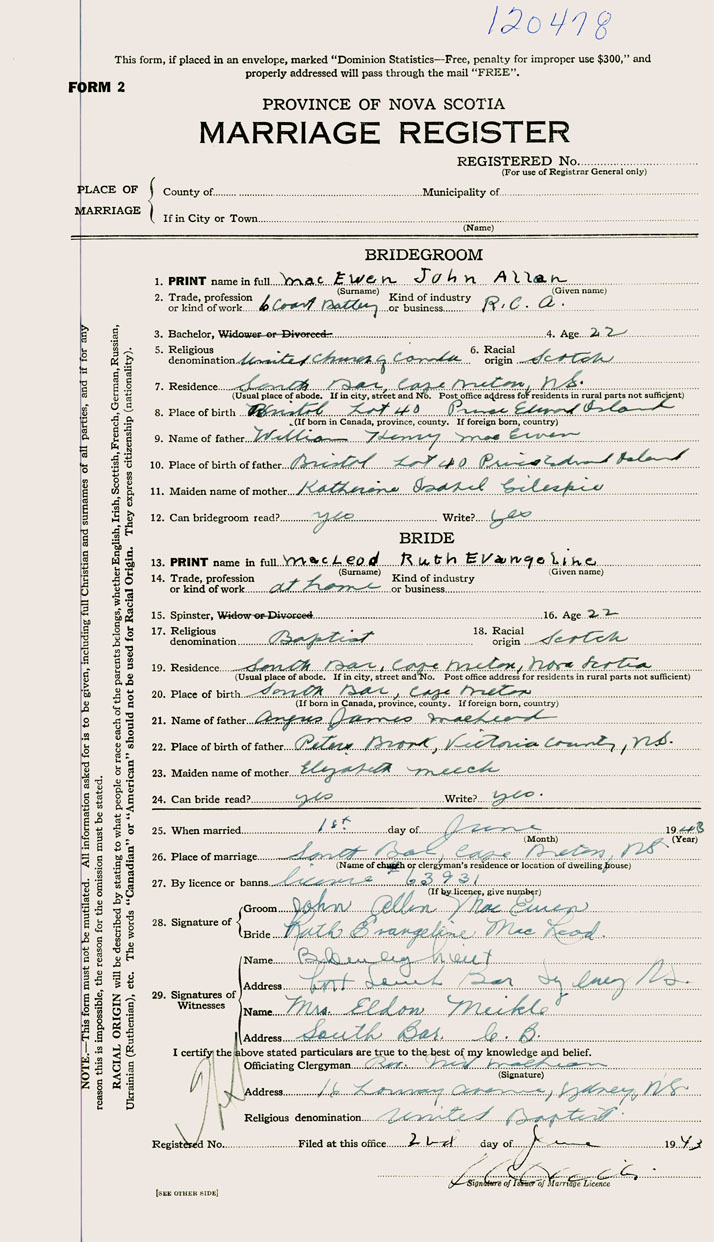 120478
This form, if placed in an envelope, marked "Dominion Statistics—Free, penalty for improper use $300," and
properly addressed will pass through the mail "FREE".
FORM 2
PROVINCE OF NOVA SCOTIA
MARRIAGE REGISTER
REGISTERED No.
(For use of Registrar General only)
PLACE OF MARRIAGE
County of Municipality of
If in City or Town
(Name)
BRIDEGROOM
1. PRINT name in full MacEwen John Allan
(Surname) (Given name)
2. Trade, profession or kind of work 6 Coast Battery Kind of industry or business R.C.A.
3. Bachelor, Widower or Divorced 4. Age 22
5. Religious denomination United Church of Canada 6. Racial origin Scotch
7. Residence South Bar, Cape Breton, N.S.
(Usual place of abode. If in city, street and No. Post office address for residents in rural parts not sufficient)
8. Place of birth Bristol Lot 40 Prince Edward Island
(If born in Canada, province, county. If foreign born, country)
9. Name of father William Henry MacEwen
10. Place of birth of father Bristol Lot 40 Prince Edward Island
11. Maiden name of mother Katherine Isabel Gilespie
12. Can bridegroom read? yes Write? yes
BRIDE
13. PRINT name in full MacLeod Ruth Evangeline
(Surname) (Given name)
14. Trade, profession or kind of work at home Kind of industry or business
15. Spinster, Widow or Divorced 16. Age 22
17. Religious denomination Baptist 18. Racial origin Scotch
19. Residence South Bar, Cape Breton, Nova Scotia
(Usual place of abode. If in city, street and No. Post office address for residents in rural parts not sufficient)
20. Place of birth South Bar, Cape Breton
(If born in Canada, province, county. If foreign born, country)
21. Name of father Angus James MacLeod
22. Place of birth of father Peters Brook, Victoria County, N.S.
23. Maiden name of mother Elizabeth Meech
24. Can bride read? yes Write? yes.
25. When married 1st day of June 1943
(Month) (Year)
26. Place of marriage South Bar, Cape Breton, N.S.
(Name of church or clergyman's residence or location of dwelling house)
27. By licence or banns licence # 63931
(If by licence, give number)
28. Signature of
Groom John Allan MacEwen
Bride Ruth Evangeline MacLeod.
29. Signatures of Witnesses
Name
Address South Bar Sydney N.S.
Name Mrs. Eldon Meikle
Address South Bar C.B.
I certify the above stated particulars are true to the best of my knowledge and belief.
Officiating Clergyman Rev.
(Signature)
Address 16 Avenue, Sydney, N.S.
Religious denomination United Baptist.
Registered No. Filed at this office 2nd day of June 1943
Signature of Issuer of Marriage Licence
[SEE OTHER SIDE]
NOTE.—This form must not be mutilated. All information asked for is to be given, including full Christian and surnames of all parties, and if for any
reason this is impossible, the reason for the omission must be stated.
RACIAL ORIGIN will be described by stating to what people or race each of the parents belongs, whether English, Irish, Scottish, French, German, Russian,
Ukrainian (Ruthenian), etc. The words "Canadian" or "American" should not be used for Racial Origin. They express citizenship (nationality).